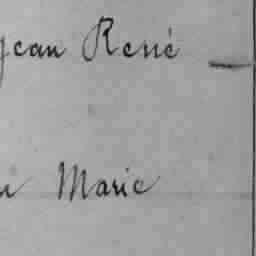 Jean René —
Marie